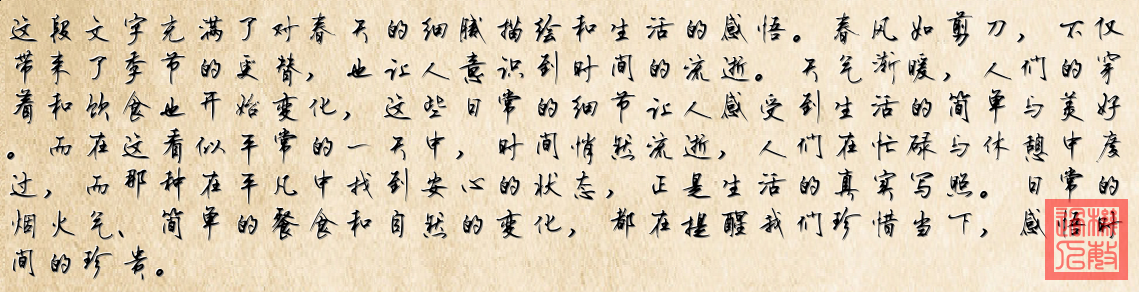 这段文字充满了对春天的细腻描绘和生活的感悟。春风如剪刀，不仅
带来了季节的更替，也让人意识到时间的流逝。天气渐暖，人们的穿
着和饮食也开始变化，这些日常的细节让人感受到生活的简单与美好
。而在这看似平常的一天中，时间悄然流逝，人们在忙碌与休憩中度
过，而那种在平凡中找到安心的状态，正是生活的真实写照。日常的
烟火气、简单的餐食和自然的变化，都在提醒我们珍惜当下，感悟时
间的珍贵。